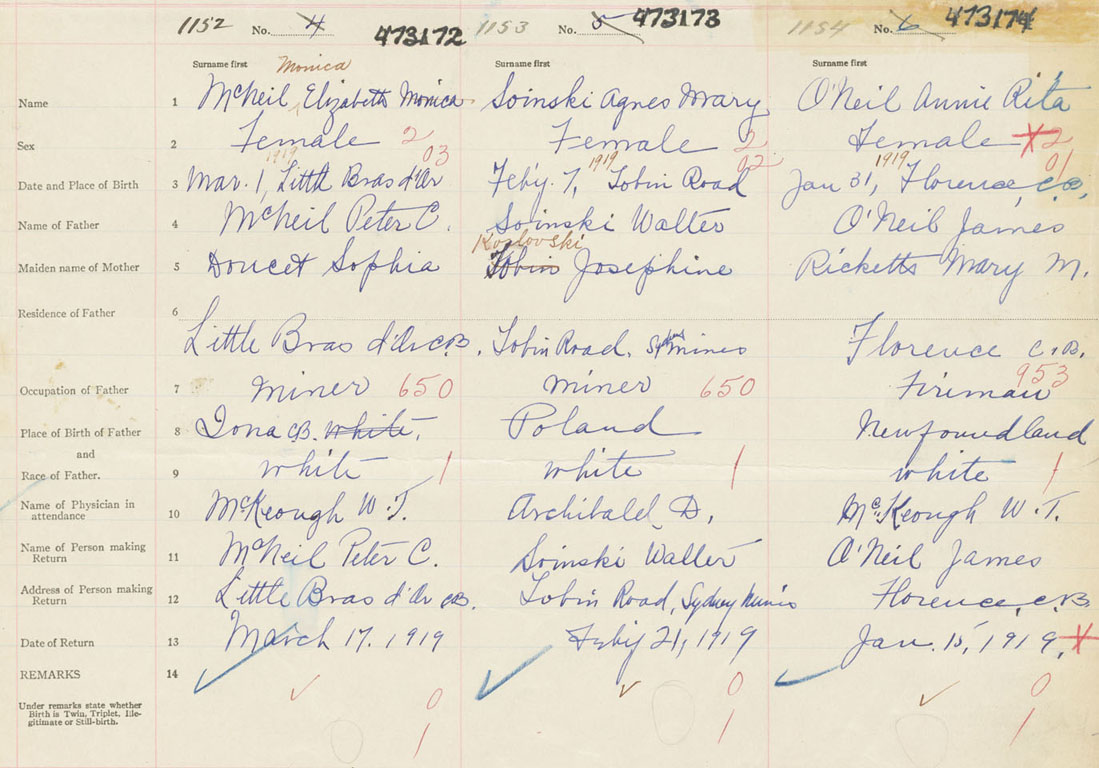 1152 No. 4 473172 1153 No. 5 473173 1154 No. 6 473174
Surname first Monica Surname first Surname first
Name 1 McNeil, Elizabeth Monica Soinski Agnes Mary O'Neil Annie Rita
Sex 2 Female 2 Female 2 Female X 2
03 02 01
1919 1919 1919
Date and Place of Birth 3 Mar. 1, Little Bras d'Or Feby. 7, Tobin Road Jan 31, Florence, C.B.
Name of Father 4 McNeil Peter C. Soinski Walter O'Neil James
Kozlovski
Maiden name of Mother 5 Doucet Sophia Tobin Josephine Ricketts Mary M.
Residence of Father 6
Little Bras d'Or C.B. Tobin Road. Syd Mines Florence C.B.
Occupation of Father 7 Miner 650 Miner 650 Fireman 953
Place of Birth of Father 8 Iona C.B. white. Poland Newfoundland
and
Race of Father. 9 white 1 white 1 white 1
Name of Physician in attendance 10 McKeough W.T. Archibald, D. McKeough W.T.
Name of Person making Return 11 McNeil Peter C. Soinski Walter O'Neil James
Address of Person making Return 12 Little Bras d'Or C.B. Tobin Road, Sydney Mines Florence, C.B.
Date of Return 13 March 17. 1919 Feby 21, 1919 Jan. 15, 1919. X
REMARKS 14
0 0 0
Under remarks state whether
Birth is Twin, Triplet, Ille-
gitimate or Still-birth.
1 1 1